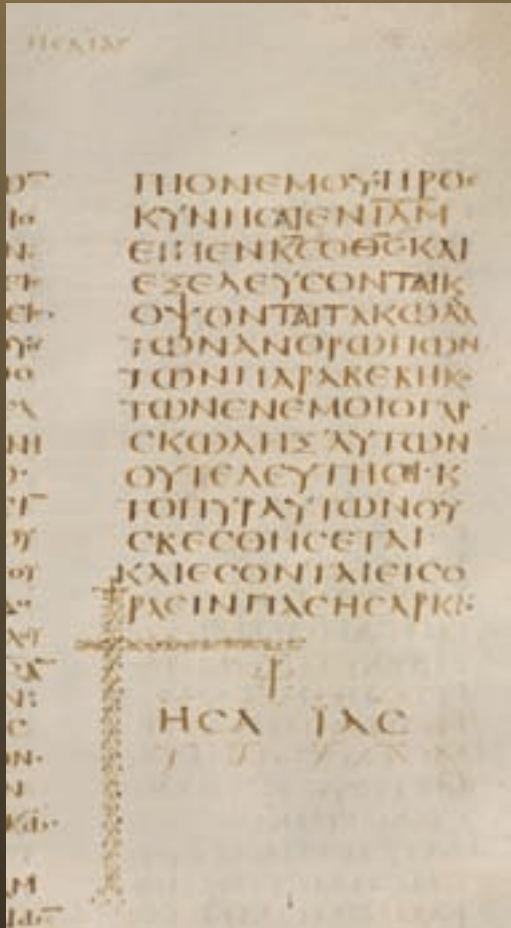 ΗϹΑΙΑϹ
ΠΙΟΝΕΜΟΥ:ΠΡΟϹ
ΚΥΝΗϹΑΙΕΝΙΛΗΜ
ΕΙΠΕΝΚ̅Ϲ̅ΟΘ̅Ϲ̅ΚΑΙ
ΕΞΕΛΕΥϹΟΝΤΑΙΚ
ΟΨΟΝΤΑΙΤΑΚΩΛΑ
ΤΩΝΑΝΘΡΩΠΩΝ
ΤΩΝΠΑΡΑΒΕΒΗΚΟ
ΤΩΝΕΝΕΜΟΙΟΓΑΡ
ϹΚΩΛΗΞΑΥΤΩΝ
ΟΥΤΕΛΕΥΤΗϹΙ·Κ
ΤΟΠΥΡΑΥΤΩΝΟΥ
ϹΒΕϹΘΗϹΕΤΑΙ
ΚΑΙΕϹΟΝΤΑΙΕΙϹΟ
ΡΑϹΙΝΠΑϹΗϹΑΡΚΙ:
ΗϹΑ ΪΑϹ